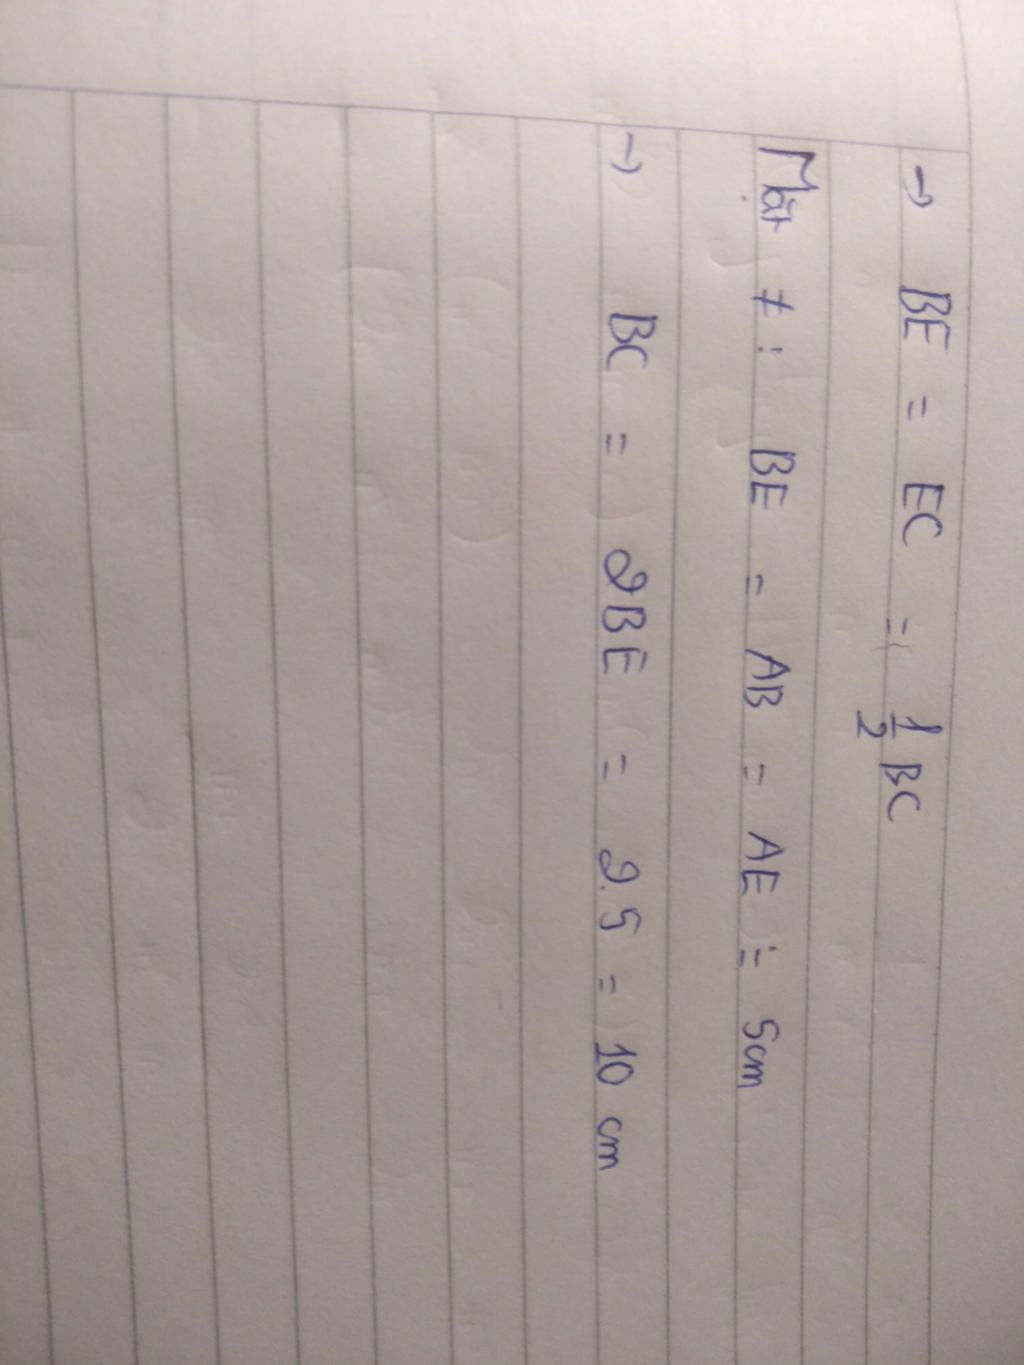 → BE = EC = 1/2 BC
Mặt ≠ : BE = AB = AE = 5cm
→ BC = 2BE = 2.5 = 10 cm